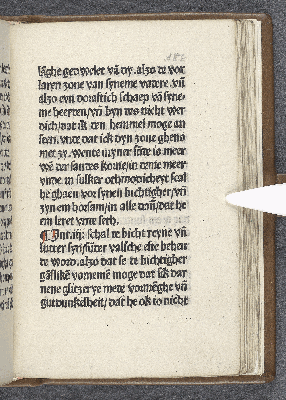 lighe gedwelet vn̄ dy. alzo de vor
laren zone van syneme vadere. vn̄
alzo eyn dorastich schaep vn̄ syne-
me heerten/vn̄ byn des nicht wer
dich/dat ik den hemmel moge an
seen. vnde dat ick dyn zone ghena
met zy. Wente myner sūde is meer
wē der santes korne/in deme meer
vnde in sulker othmodicheyt scal
he ghaen vor synen bichtigher/vn̄
zyn em horsam/in alle dan̄/dat he
em leret vnde seth.
Dat .iij. schal te bicht reyne vn̄
lutter syn/sūder valsche die behar
de word. alzo dat se te bichtigher
gāslikē vornemē moge dat sik dar
nene glitzerye mede vormēghe vn̄
gut dunkelheit/dat he ok io nicht